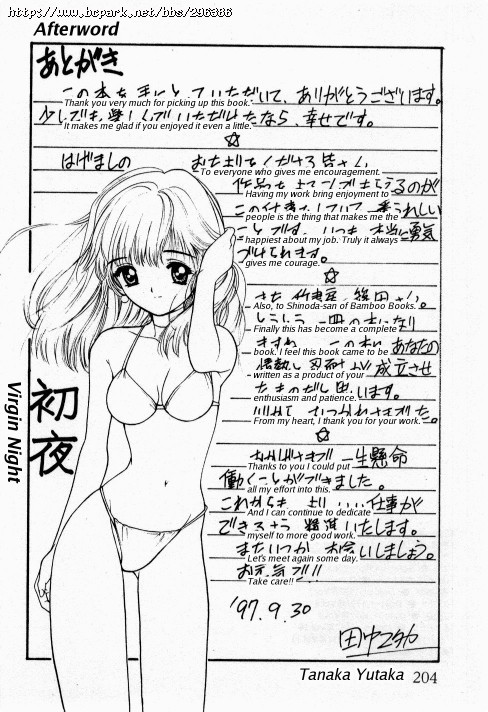 https://www.bcpark.net/bbs/296366
Afterword
あとがき
この本を手にとっていただいて、ありがとうございます。
Thank you very much for picking up this book.
少しでも楽しんでいただけたなら、幸せです。
It makes me glad if you enjoyed it even a little.
☆
はげましの おたよりをくださる皆さん
To everyone who gives me encouragement.
Having my work bring enjoyment to
people is the thing that makes me the
happiest about my job. Truly it always
勇気
gives me courage.
☆
Also, to Shinoda-san of Bamboo Books.
Finally this has become a complete
book. I feel this book came to be
あなたの
written as a product of your
成立させ
enthusiasm and patience.
います。
From my heart, I thank you for your work.
☆
一生懸命
Thanks to you I could put
働くことができました。
all my effort into this.
これからも より いい仕事が
And I can continue to dedicate
できるよう 精進いたします。
myself to more good work.
またいつか お会いしましょう。
Let's meet again some day.
お元気で!!
Take care!!
'97.9.30
田中ユタカ
初夜
Virgin Night
Tanaka Yutaka
204